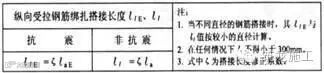 纵向受拉钢筋绑扎搭接长度 llE、ll
抗 震
非 抗 震
llE = ζ laE
ll = ζ la
注:
1. 当不同直径的钢筋搭接时,其 llE 与
ll 值按较小的直径计算。
2. 在任何情况下 ll 不得小于 300mm.
3. 式中 ζ 为搭接长度修正系数。